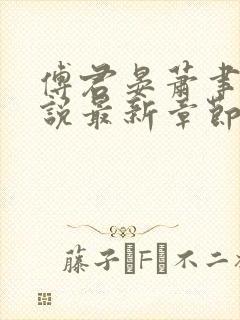 傅君晏蕭事
說最新章節
藤子・F・不二